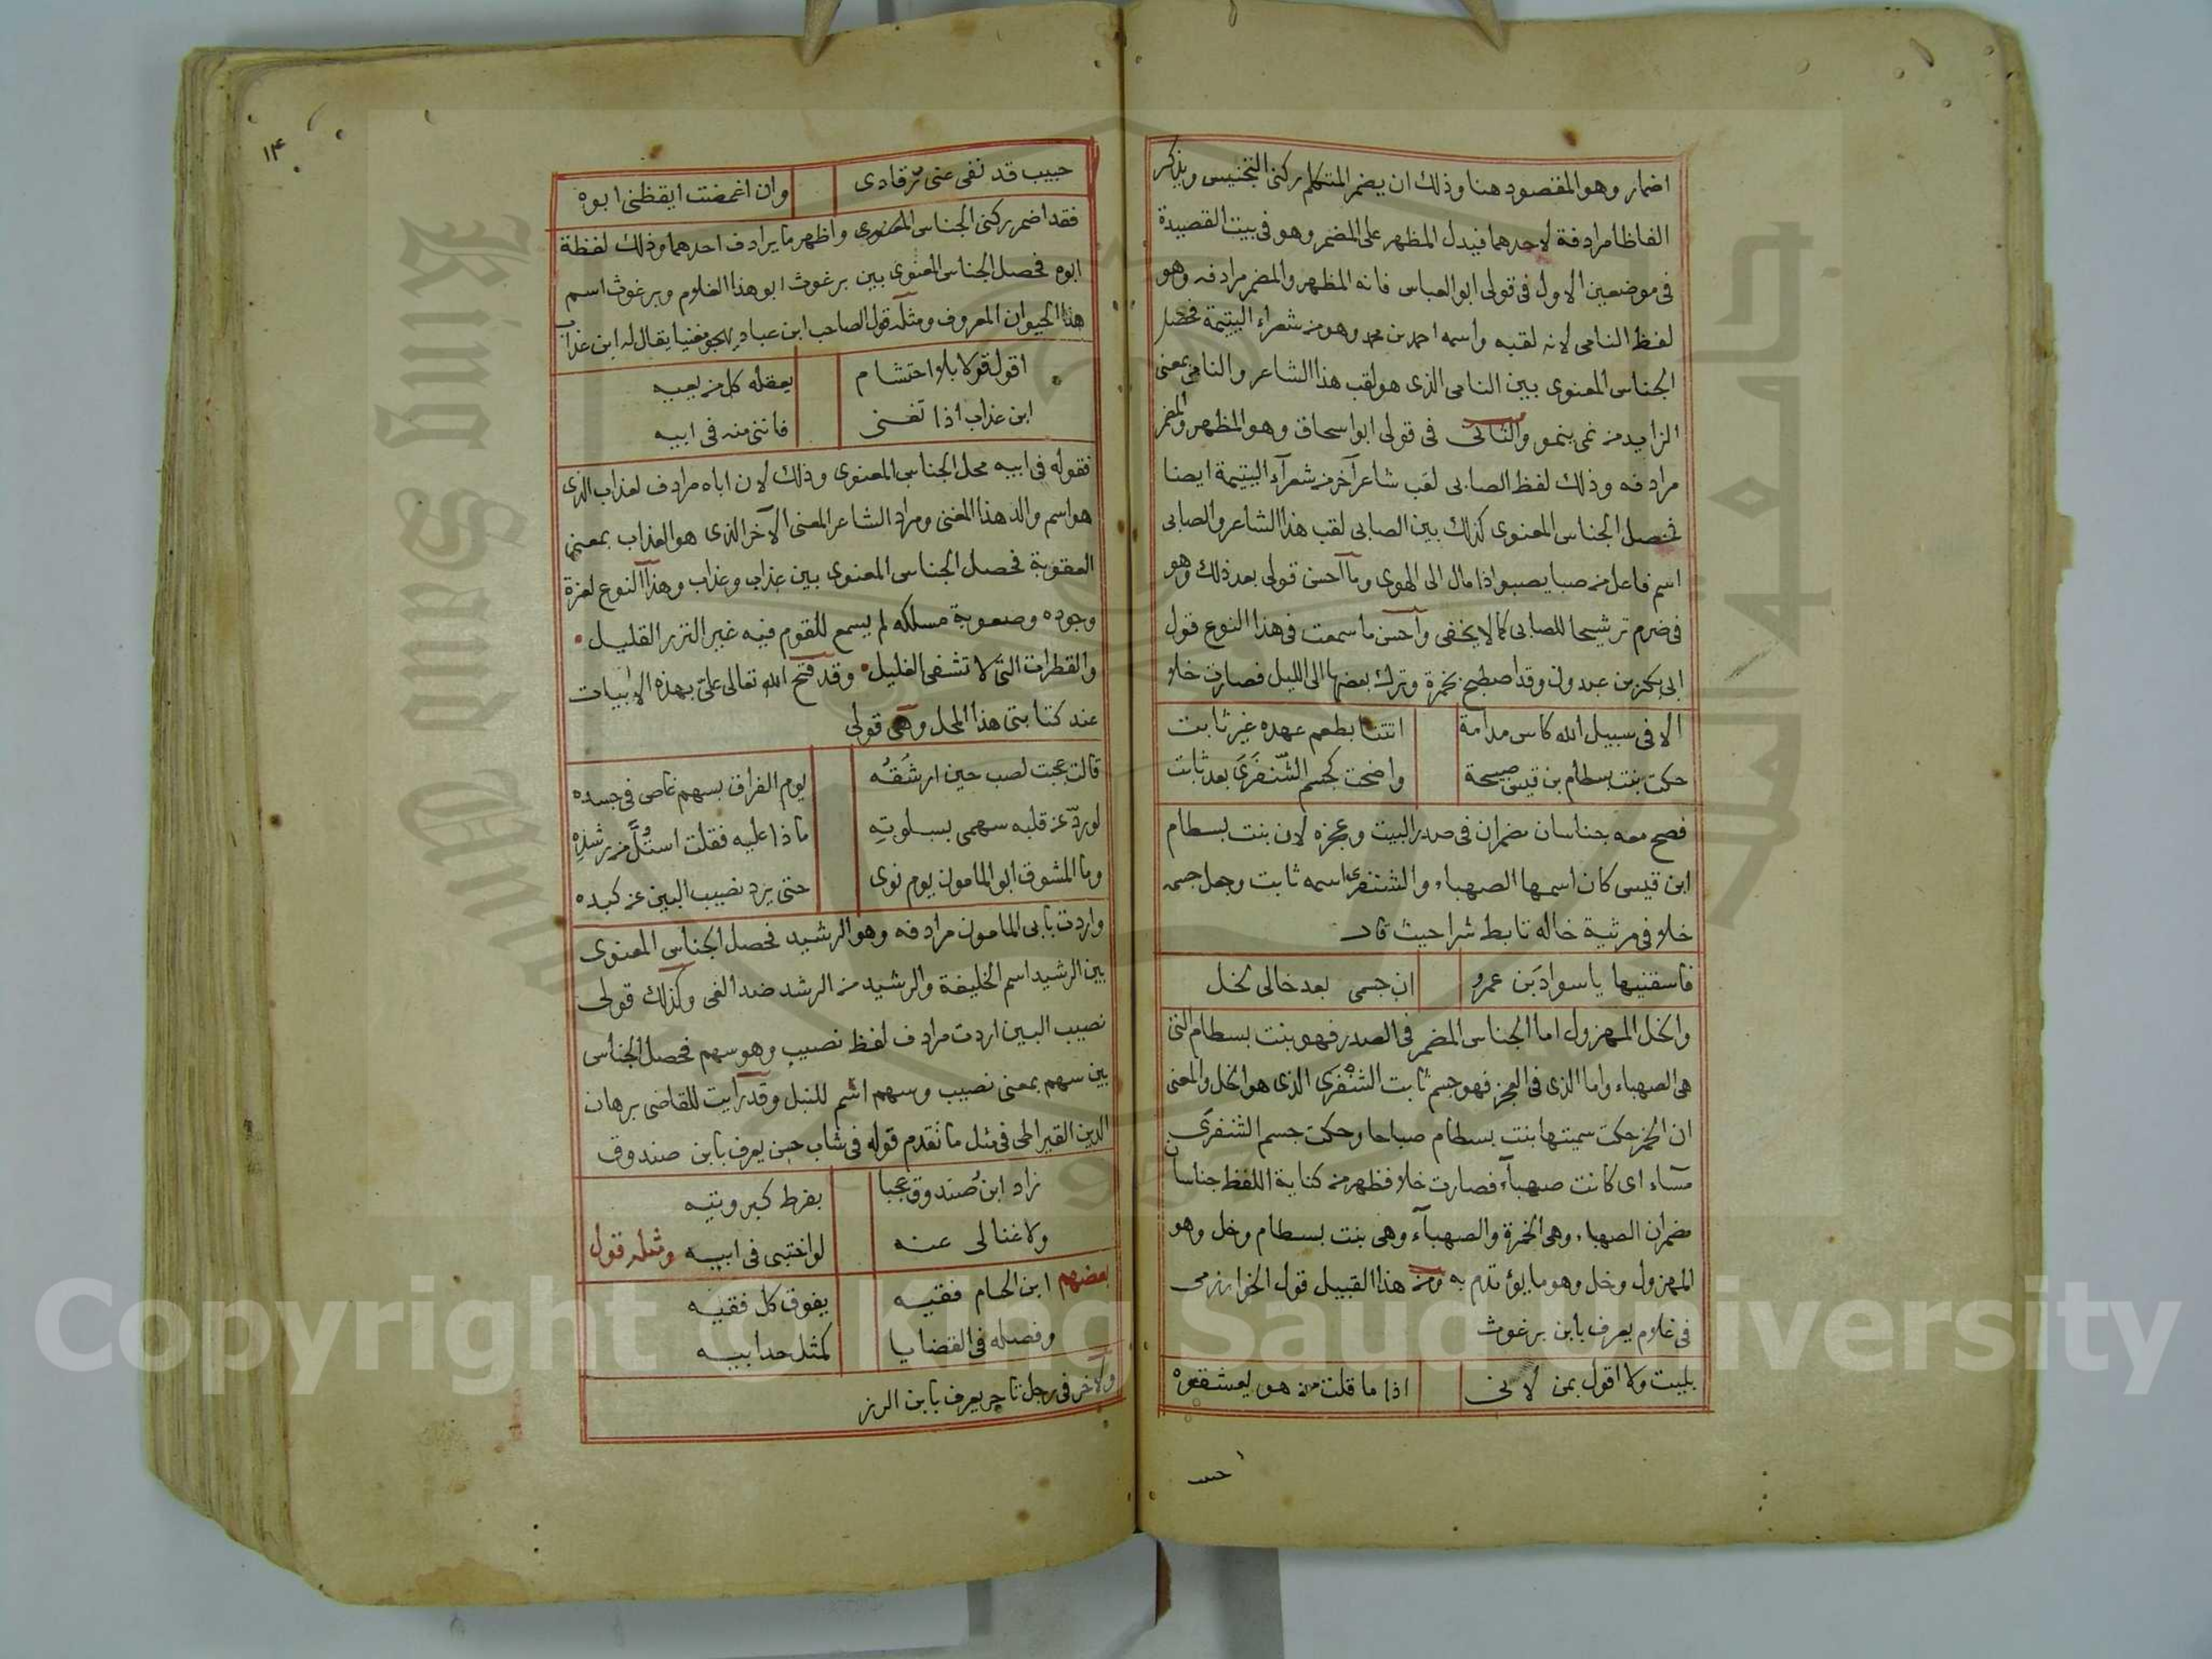 اضمار وهو المقصود هنا وذلك ان يضمر المتكلم ركنى التجنيس ويذكر
الفاظا مرادفة لاحدهما فيدل المظهر على المضمر وهو فى بيت القصيدة
فى موضعين الاول فى قولى ابو العباس فانه المظهر والمضمر مرادفه وهو
لفظ النامى لانه لقبه واسمه احمد بن محمد وهو من شعراء اليتيمة فحصل
الجناس المعنوى بين النامى الذى هو لقب هذا الشاعر والنامى بمعنى
الزايد من نمى ينمو والثانى فى قولى ابو اسحاق وهو المظهر والمضمر
مرادفه وذلك لفظ الصابى لقب شاعر آخر من شعرآء اليتيمة ايضا
فحصل الجناس المعنوى كذلك بين الصابى لقب هذا الشاعر والصابى
اسم فاعل من صبا يصبو اذا مال الى الهوى وما آحسن قولى بعد ذلك وهو
فى ضرم ترشيحا للصابى كما لا يخفى وآحسن ما سمعت فى هذا النوع قول
ابى بكر بن عبدون وقد اصطبح بخمرة وترك بعضها الى الليل فصارت خلا
الا فى سبيل الله كاس مدامة اتتنا بطعم عهده غير ثابت
حكت بنت بسطام بن قيس صبيحة واضحت كجسم الشنفرى بعد ثابت
فصح معه جناسان مضمران فى صدر البيت وعجزه لان بنت بسطام
ابن قيس كان اسمها الصهباء والشنفرى اسمه ثابت وجعل جسمه
خلا فى مرثية خاله تابط شرا حيث قال
فاسقنيها يا سواد بن عمرو ان جسمى بعد خالى لخل
والخل المهزول اما الجناس المضمر فى الصدر فهو بنت بسطام التى
هى الصهباء واما الذى فى العجز فهو جسم ثابت الشنفرى الذى هو الخل والمعنى
ان الخمر حكت سميتها بنت بسطام صباحا وحكت جسم الشنفرى
مسآء اى كانت صهبآء فصارت خلا فظهر من كناية اللفظ جناسان
مضمران الصهباء وهى الخمرة والصهبآء وهى بنت بسطام وخل وهو
المهزول وخل وهو ما يؤتدم به ومن هذا القبيل قول الخوارزمى
فى غلام يعرف بابن برغوث
بليت ولا اقول بمن لانى اذا ما قلت من هو يعشقوه
حبيب
١٤
حبيب قد نفى عنى رقادى وان اغمضت ايقظنى ابوه
فقد اضمر ركنى الجناس المعنوى واظهر ما يرادف احدهما وذلك لفظة
ابوه فحصل الجناس المعنوى بين برغوث ابو هذا الغلام وبرغوث اسم
هذا الحيوان المعروف ومثله قول الصاحب ابن عباد يهجو مغنيا يقال له ابن عذاب
اقول قولا بلا احتشام يعقله كل من يعيه
ابن عذاب اذا تغنى فاننى منه فى ابيه
فقوله فى ابيه محل الجناس المعنوى وذلك لان اباه مرادف لعذاب الذى
هو اسم والد هذا المغنى ومراد الشاعر المعنى الآخر الذى هو العذاب بمعنى
العقوبة فحصل الجناس المعنوى بين عذاب وعذاب وهذا النوع لعزة
وجوده وصعوبة مسلكه لم يسمع للقوم فيه غير النزر القليل
والقطرات التى لا تشفى الغليل وقد فتح الله تعالى على بهذه الابيات
عند كتابتى هذا المحل وهى قولى
قالت عجبت لصب حين ارشقه يوم الفراق بسهم غاص فى جسده
لو ردّ عن قلبه سهمى بسلوته ماذا عليه فقلت استُلّ من رشده
وما المشوق ابو المامون يوم نوى حتى يرد نصيب البين عن كبده
واردت بابى المامون مرادفه وهو الرشيد فحصل الجناس المعنوى
بين الرشيد اسم الخليفة والرشيد من الرشد ضد الغى وكذلك قولى
نصيب البين اردت مرادف لفظ نصيب وهو سهم فحصل الجناس
بين سهم بمعنى نصيب وسهم اسم للنبل وقد رآيت للقاضى برهان
الدين القيراطى فى مثل ما تقدم قوله فى شاب حسن يعرف بابن صندوق
زاد ابن صندوق عجبا بفرط كبر وتيه
ولا غنا لى عنه لو اختبى فى ابيه ومثله قول
بعضهم ابن الحام فقيه يفوق كل فقيه
وفصله فى القضايا كمثل حد ابيه
ولآخر فى رجل تاجر يعرف بابن الرز
Copyright © King Saud University